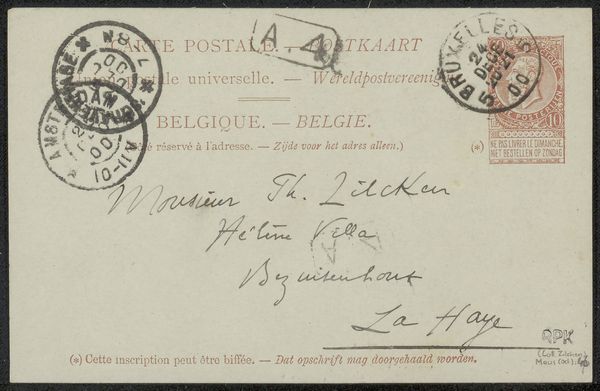 CARTE POSTALE. — POSTKAART
Union postale universelle. — Wereldpostvereenig
BELGIQUE. — BELGIE.
réservé à l'adresse. — Zijde voor het adres alleen.)
(*)
10
NE PAS LIVRER LE DIMANCHE
NIET BESTELLEN OP ZONDAG
BRUXELLES 5
24
DEC
00
A 4
AMST
00
Monsieur Th. Zilcken
Hélène Villa
Bezuitenhout
La Haye
RPK
(*) Cette inscription peut être biffée. — Dat opschrift mag doorgehaald worden.